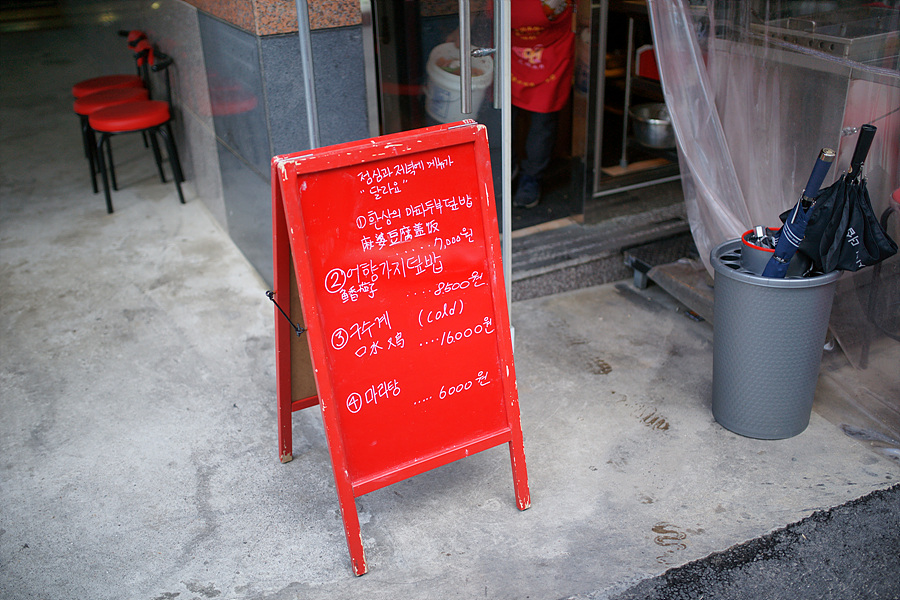 정심과 저녁에 메뉴가
"달라요"
① 환상의 마파두부덮밥
麻婆豆腐盖饭
......7,000원
② 어향가지덮밥
鱼香茄子 ....8500원
③ 구수계 (cold)
口水鸡 ....16000원
④ 마라탕 ..... 6000원